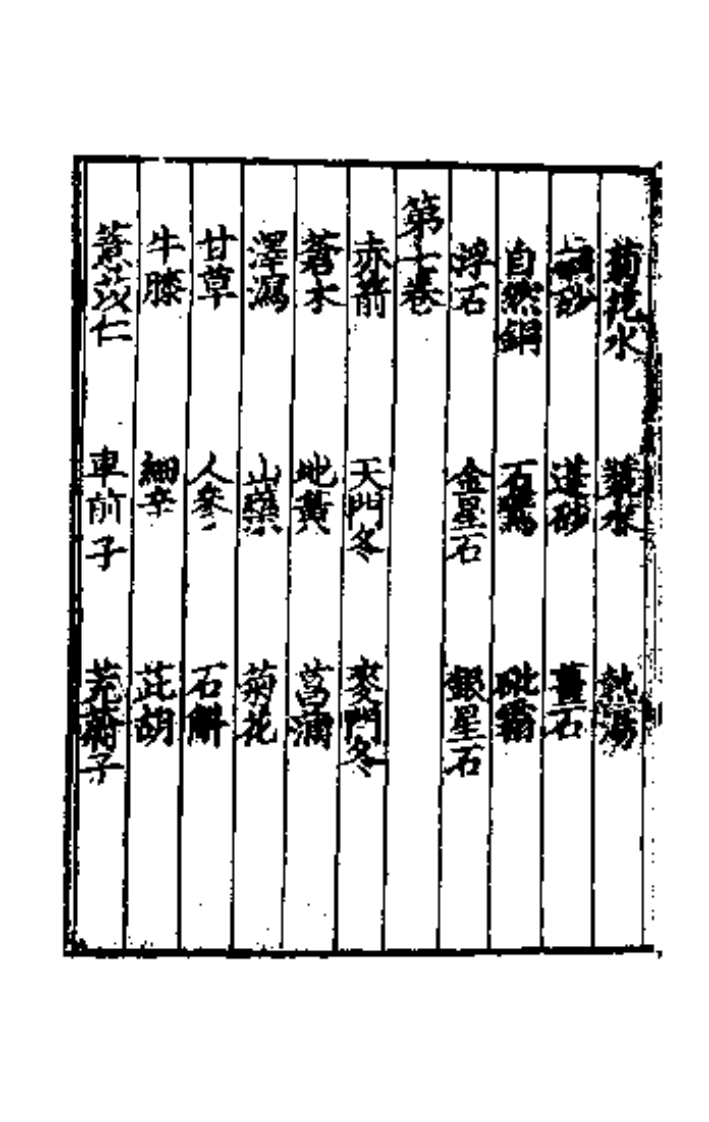 菊花水　漿水　熱湯
硇砂　蓬砂　薑石
自然銅　石鷰　砒霜
浮石　金星石　銀星石
第七卷
赤箭　天門冬　麥門冬
蒼木　地黃　菖蒲
澤瀉　山藥　菊花
甘草　人參　石斛
牛膝　細辛　茈胡
薏苡仁　車前子　茺蔚子